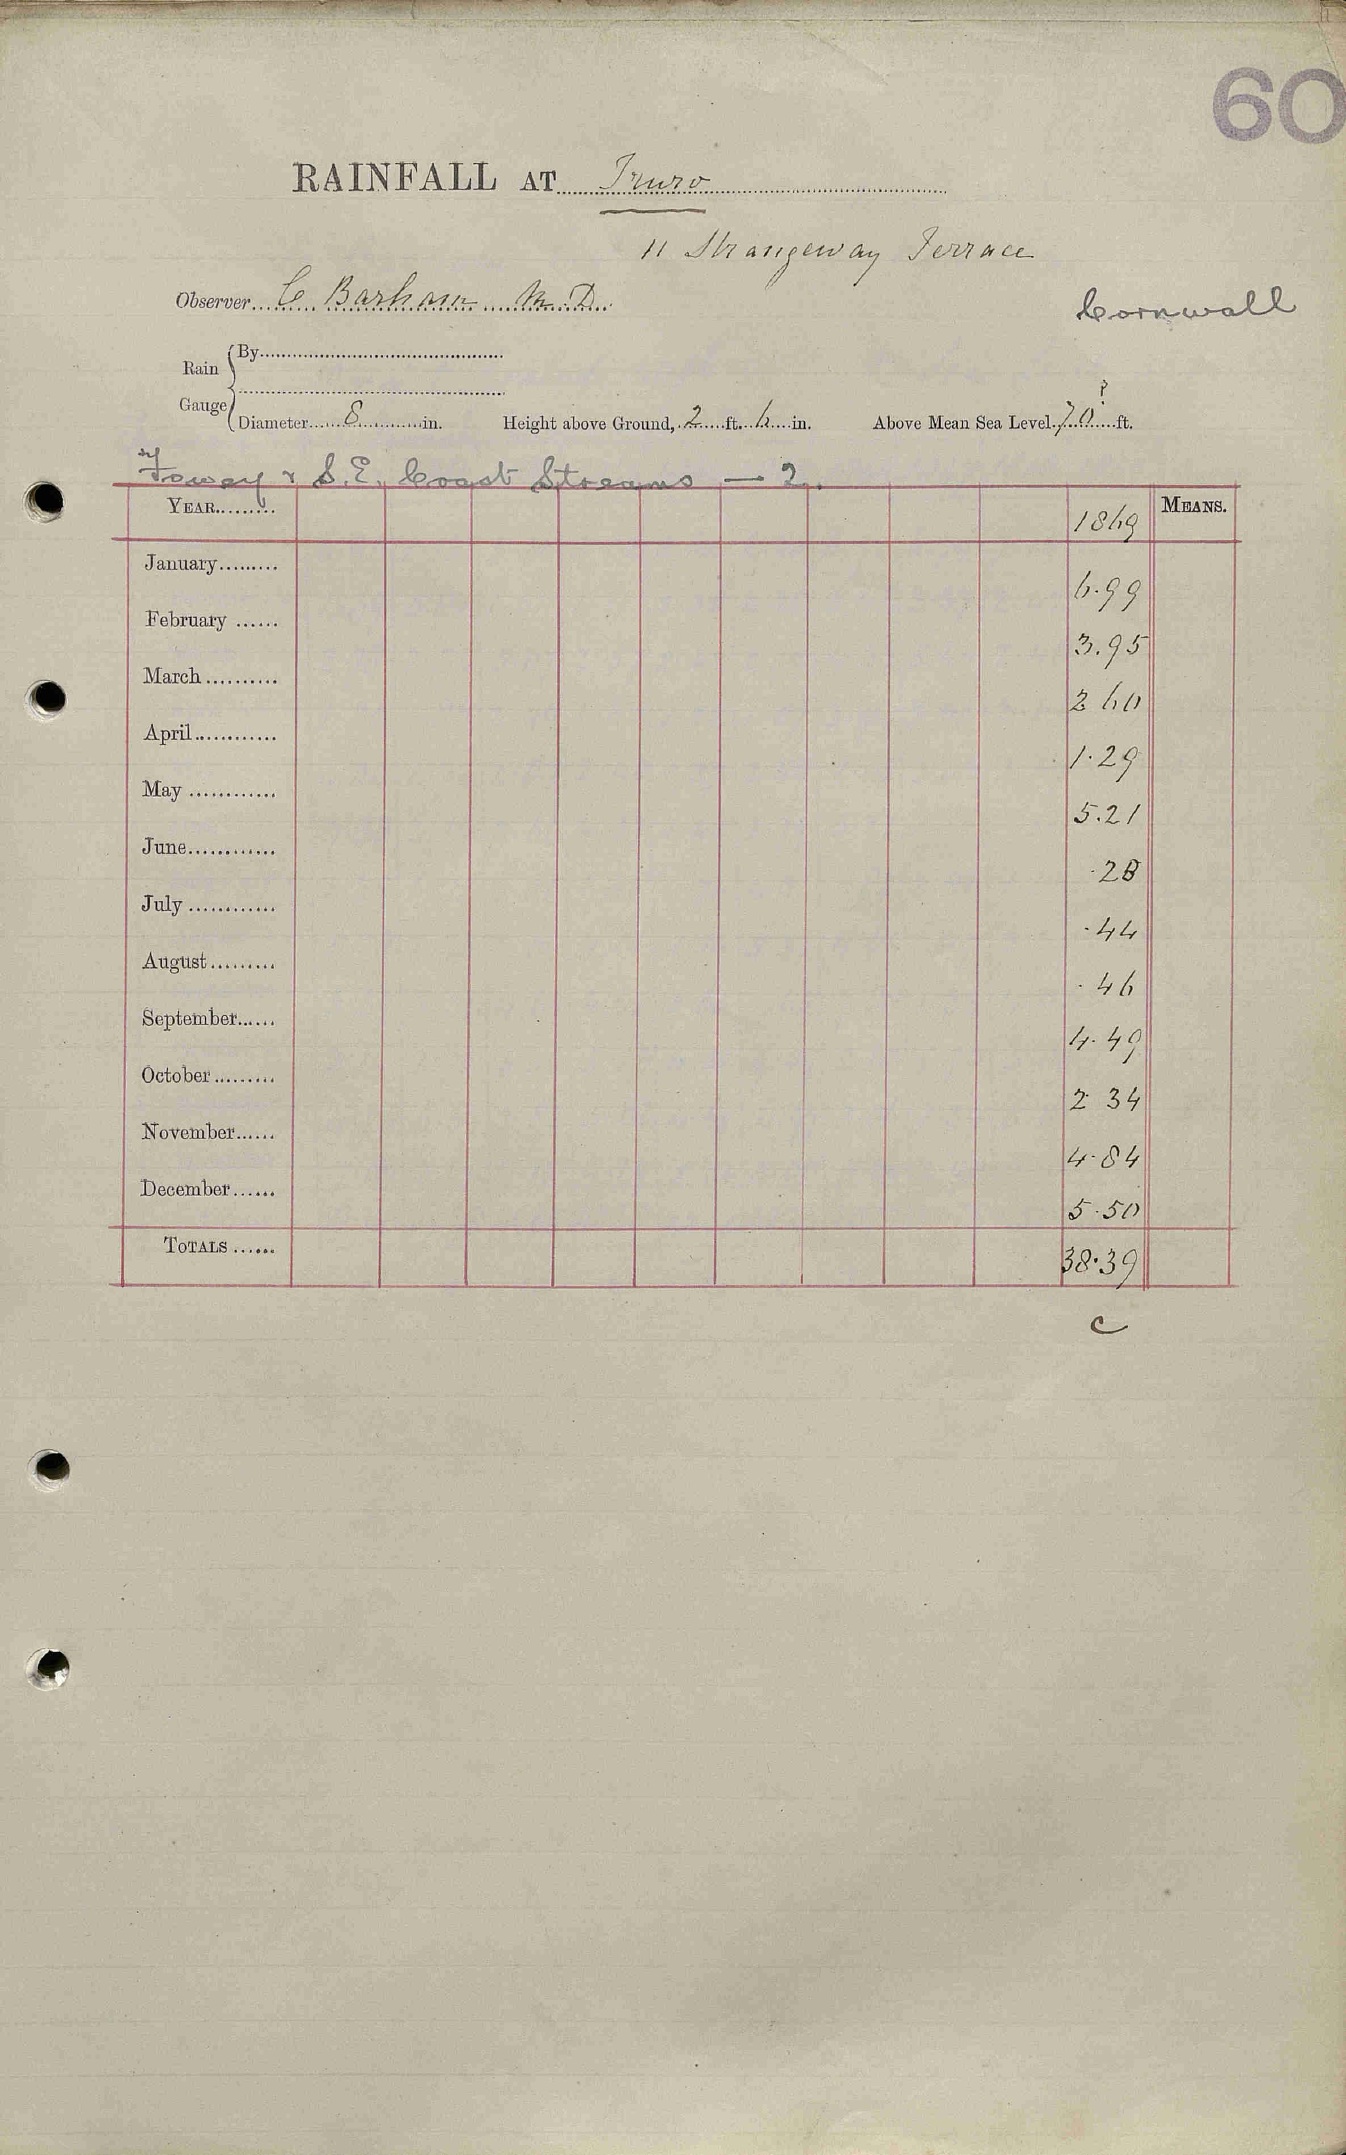 60
RAINFALL AT Truro
11 Strangeway Terrace
Observer C Barham M.D.
Cornwall
Rain Gauge
By
Diameter 8 in. Height above Ground, 2 ft. 6 in. Above Mean Sea Level 70 ? ft.
Fowey & S.E. Coast Streams — 2.
YEAR 1869 MEANS.
January 6.99
February 3.95
March 2 60
April 1.29
May 5.21
June .28
July .44
August .46
September 4.49
October 2 34
November 4.84
December 5.50
TOTALS 38.39
C